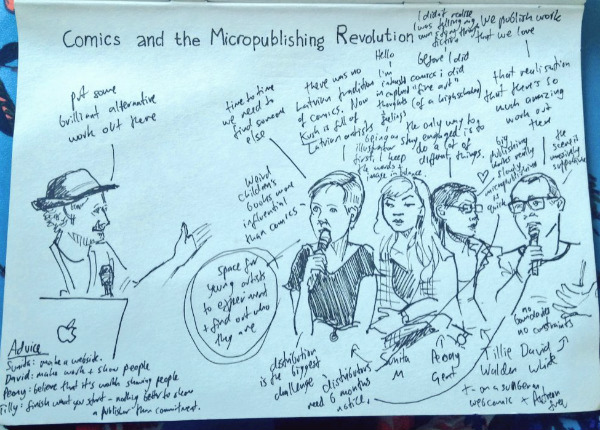 Comics and the Micropublishing Revolution
put some
brilliant alternative
work out there
time to time
we need to
find someone
else
there was no
Latvian tradition
of comics. Now
Kuš is full of
Latvian artists
Hello
I'm
before I did
comics I did
thoughts (of a highschooler)
feelings
I didn't realise
I was
fiction
we publish work
that we love
that realisation
that there's so
much amazing
work out
there
weird
children's
books more
influential
than comics
being an
illustrator
first, I keep
words +
image in balance
the only way to
stay engaged is to
do a lot of
different things.
big
publishing
works really
slowly
micropublishing
is quick
the scene is
massively
supportive
space for
young artists
to experiment
+ find out who
they are
distribution
is the biggest
challenge
distributors
need 6 months
notice
Sunita
M
Peony
Gent
Tillie
Walden
David
White
no
boundaries
no constraints
webcomic +
Advice
Sunita: make a website.
David: make work + show people
Peony: believe that it's worth showing people
Tilly: finish what you start - nothing better to show
a publisher than commitment.